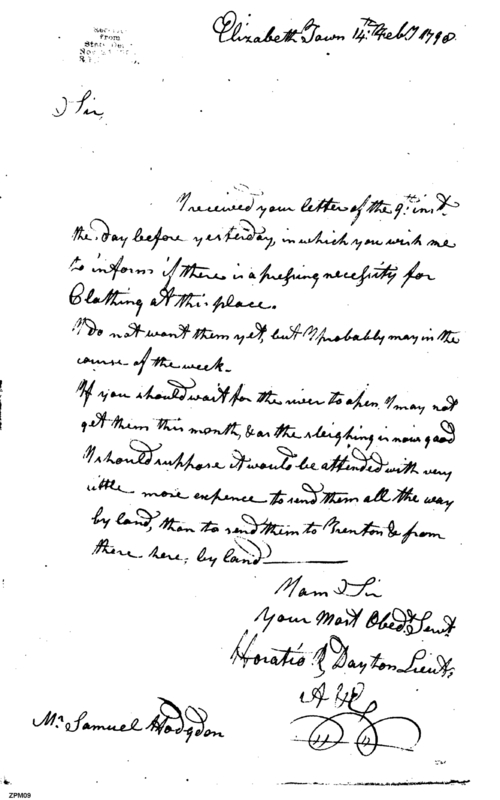 Elizabeth Town 14th Feby 1798
Received
from
State Dept
D Sir,
I received your letter of the 9th inst.
the day before yesterday, in which you wish me
to inform if there is a pressing necessity for
Clothing at this place.
I do not want them yet, but I probably may in the
course of the week.
If you should wait for the river to open I may not
get them this month, & as the sleighing is now good
I should suppose it would be attended with very
little more expence to send them all the way
by land, than to send them to Trenton & from
there here, by land
I am D Sir
Your Most Obedt Servt.
Horatio R Dayton Lieut.
Mr Samuel Hodgdon
ZPM09